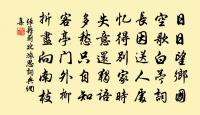 日日望鄉國
空歌白苧詞
長因送人處
憶得別家時
失意還獨語
多愁只自知
客亭門外柳
折盡向南枝
張籍薊北旅思